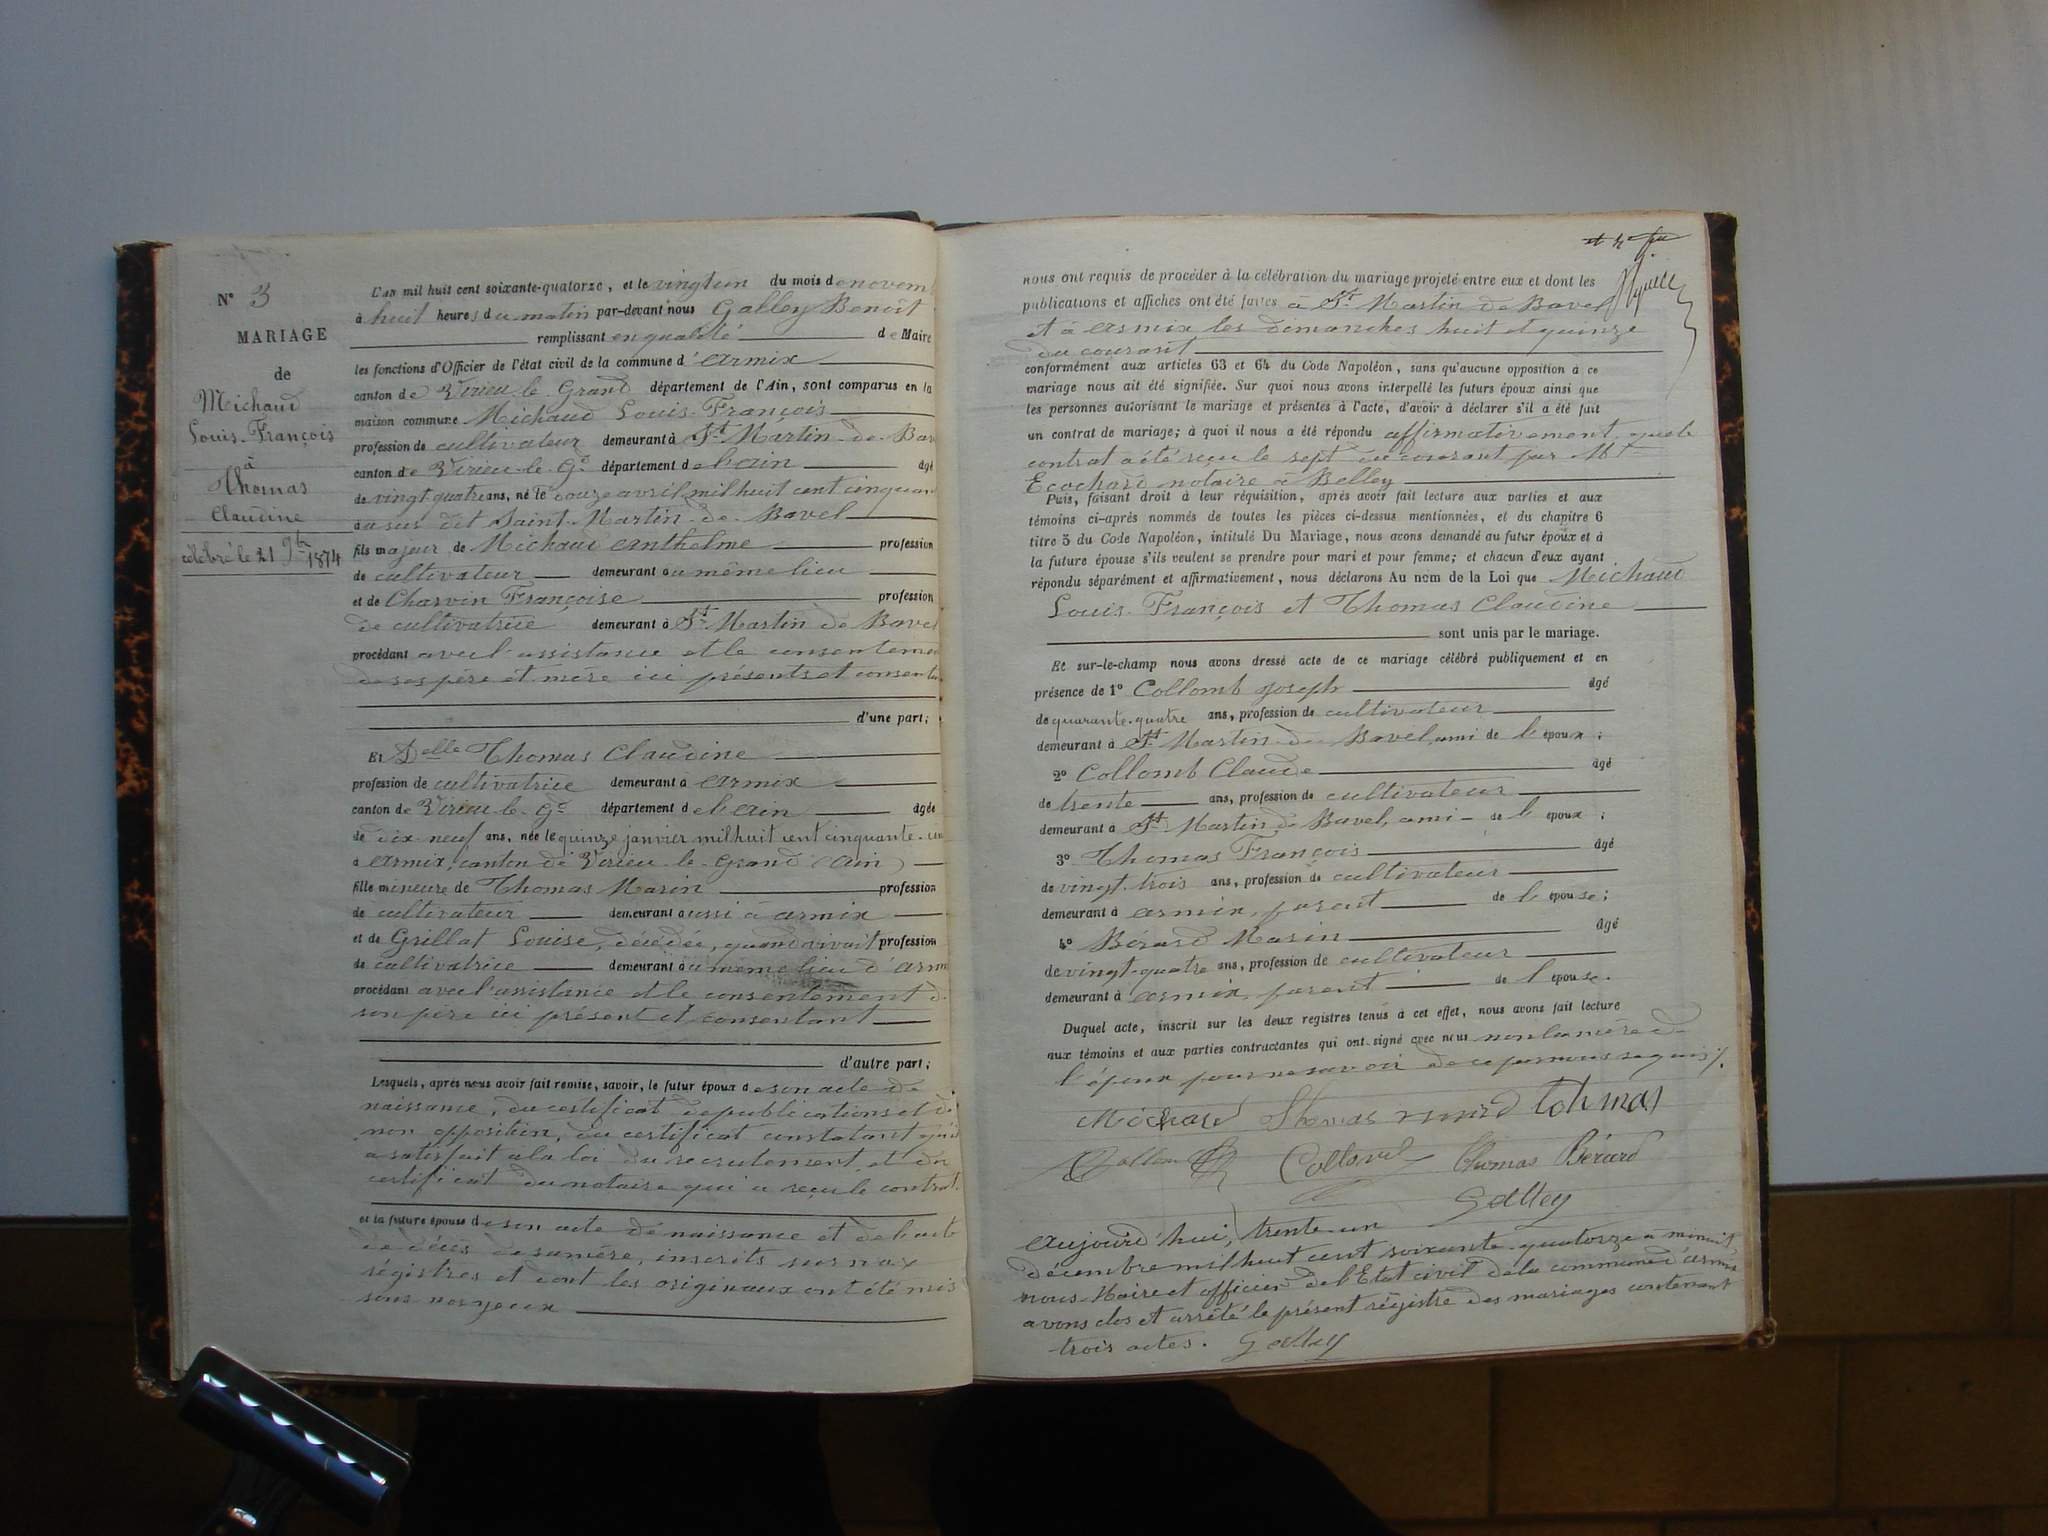 N° 3
MARIAGE
de
Michaud
Louis-François
à
Thomas
Claudine
célébré le 21 9bre 1874
L'an mil huit cent soixante-quatorze, et le vingt un du mois de novem
à huit heures du matin par-devant nous Galley Benoît
remplissant en qualité de Maire
les fonctions d'Officier de l'état civil de la commune d'Armix
canton de Virieu-le-Grand département de l'Ain, sont comparus en la
maison commune Michaud Louis-François
profession de cultivateur demeurant à St Martin-de-Bav
canton de Virieu-le-Gd département de l'ain âgé
de vingt quatre ans, né le douze avril mil huit cent cinquan
au sus dit Saint-Martin-de-Bavel
fils majeur de Michaud Anthelme profession
de cultivateur demeurant au même lieu
et de Charvin Françoise profession
de cultivatrice demeurant à St Martin de Bavel
procédant avec l'assistance et le consentemen
de ses père et mère ici présents et consent
d'une part;
Et Delle Thomas Claudine
profession de cultivatrice demeurant à Armix
canton de Virieu-le-Gd département de l'ain âgée
de dix neuf ans, née le quinze janvier mil huit cent cinquante-
à Armix, canton de Virieu-le-Grand (Ain)
fille mineure de Thomas Marin profession
de cultivateur demeurant aussi à Armix
et de Grillat Louise, décédée, quand vivait profession
de cultivatrice demeurant au même lieu d'Arm
procédant avec l'assistance et le consentement de
son père ici présent et consentant
d'autre part;
Lesquels, après nous avoir fait remise, savoir, le futur époux de son acte de
naissance, du certificat de publications et de
non opposition, du certificat constatant qu'il
a satisfait à la loi du recrutement et du
certificat du notaire qui a reçu le contrat.
et la future épouse de son acte de naissance et de l'acte
de décès de sa mère, inscrits sur nos
régistres et dont les originaux ont été mis
sous nos yeux
nous ont requis de procéder à la célébration du mariage projeté entre eux et dont les
publications et affiches ont été faites à St Martin de Bavel
et à Armix les dimanches huit et quinze
du courant
conformément aux articles 63 et 64 du Code Napoléon, sans qu'aucune opposition à ce
mariage nous ait été signifiée. Sur quoi nous avons interpellé les futurs époux ainsi que
les personnes autorisant le mariage et présentes à l'acte, d'avoir à déclarer s'il a été fait
un contrat de mariage; à quoi il nous a été répondu affirmativement que le
contrat a été reçu le sept du courant par Mt
Ecochard notaire à Belley
Puis, faisant droit à leur réquisition, après avoir fait lecture aux parties et aux
témoins ci-après nommés de toutes les pièces ci-dessus mentionnées, et du chapitre 6
titre 5 du Code Napoléon, intitulé Du Mariage, nous avons demandé au futur époux et à
la future épouse s'ils veulent se prendre pour mari et pour femme; et chacun d'eux ayant
répondu séparément et affirmativement, nous déclarons Au nom de la Loi que Michaud
Louis-François et Thomas Claudine
sont unis par le mariage.
Et sur-le-champ nous avons dressé acte de ce mariage célébré publiquement et en
présence de 1° Collomb Joseph âgé
de quarante-quatre ans, profession de cultivateur
demeurant à St Martin-de-Bavel, ami de l'époux;
2° Collomb Claude âgé
de trente ans, profession de cultivateur
demeurant à St Martin de Bavel, ami de l'époux;
3° Thomas François âgé
de vingt-trois ans, profession de cultivateur
demeurant à Armix, parent de l'épouse;
4° Bérard Marin âgé
de vingt-quatre ans, profession de cultivateur
demeurant à Armix, parent de l'épouse.
Duquel acte, inscrit sur les deux registres tenus à cet effet, nous avons fait lecture
aux témoins et aux parties contractantes qui ont signé avec nous non la mère de
l'époux pour ne savoir de ce par nous requis ./.
Michard Thomas tohmas
Collomb Thomas Bérard
Galley
Aujourd'hui, trente-un
décembre mil huit cent soixante-quatorze à minuit,
nous Maire et officier de l'Etat civil de la commune d'Armix
avons clos et arrêté le présent régistre des mariages contenant
trois actes. Galley